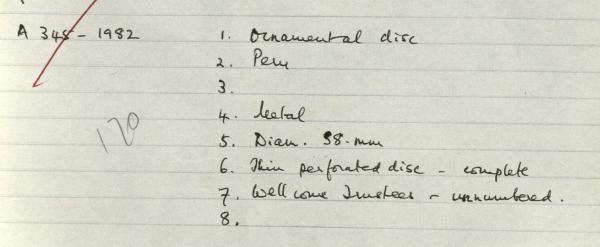 A 345 - 1982 1. Ornamental disc
2. Peru
3.
4. Metal
120
5. Diam. 58. mm
6. Thin perforated disc - complete
7. Wellcome Trustees - unnumbered.
8.